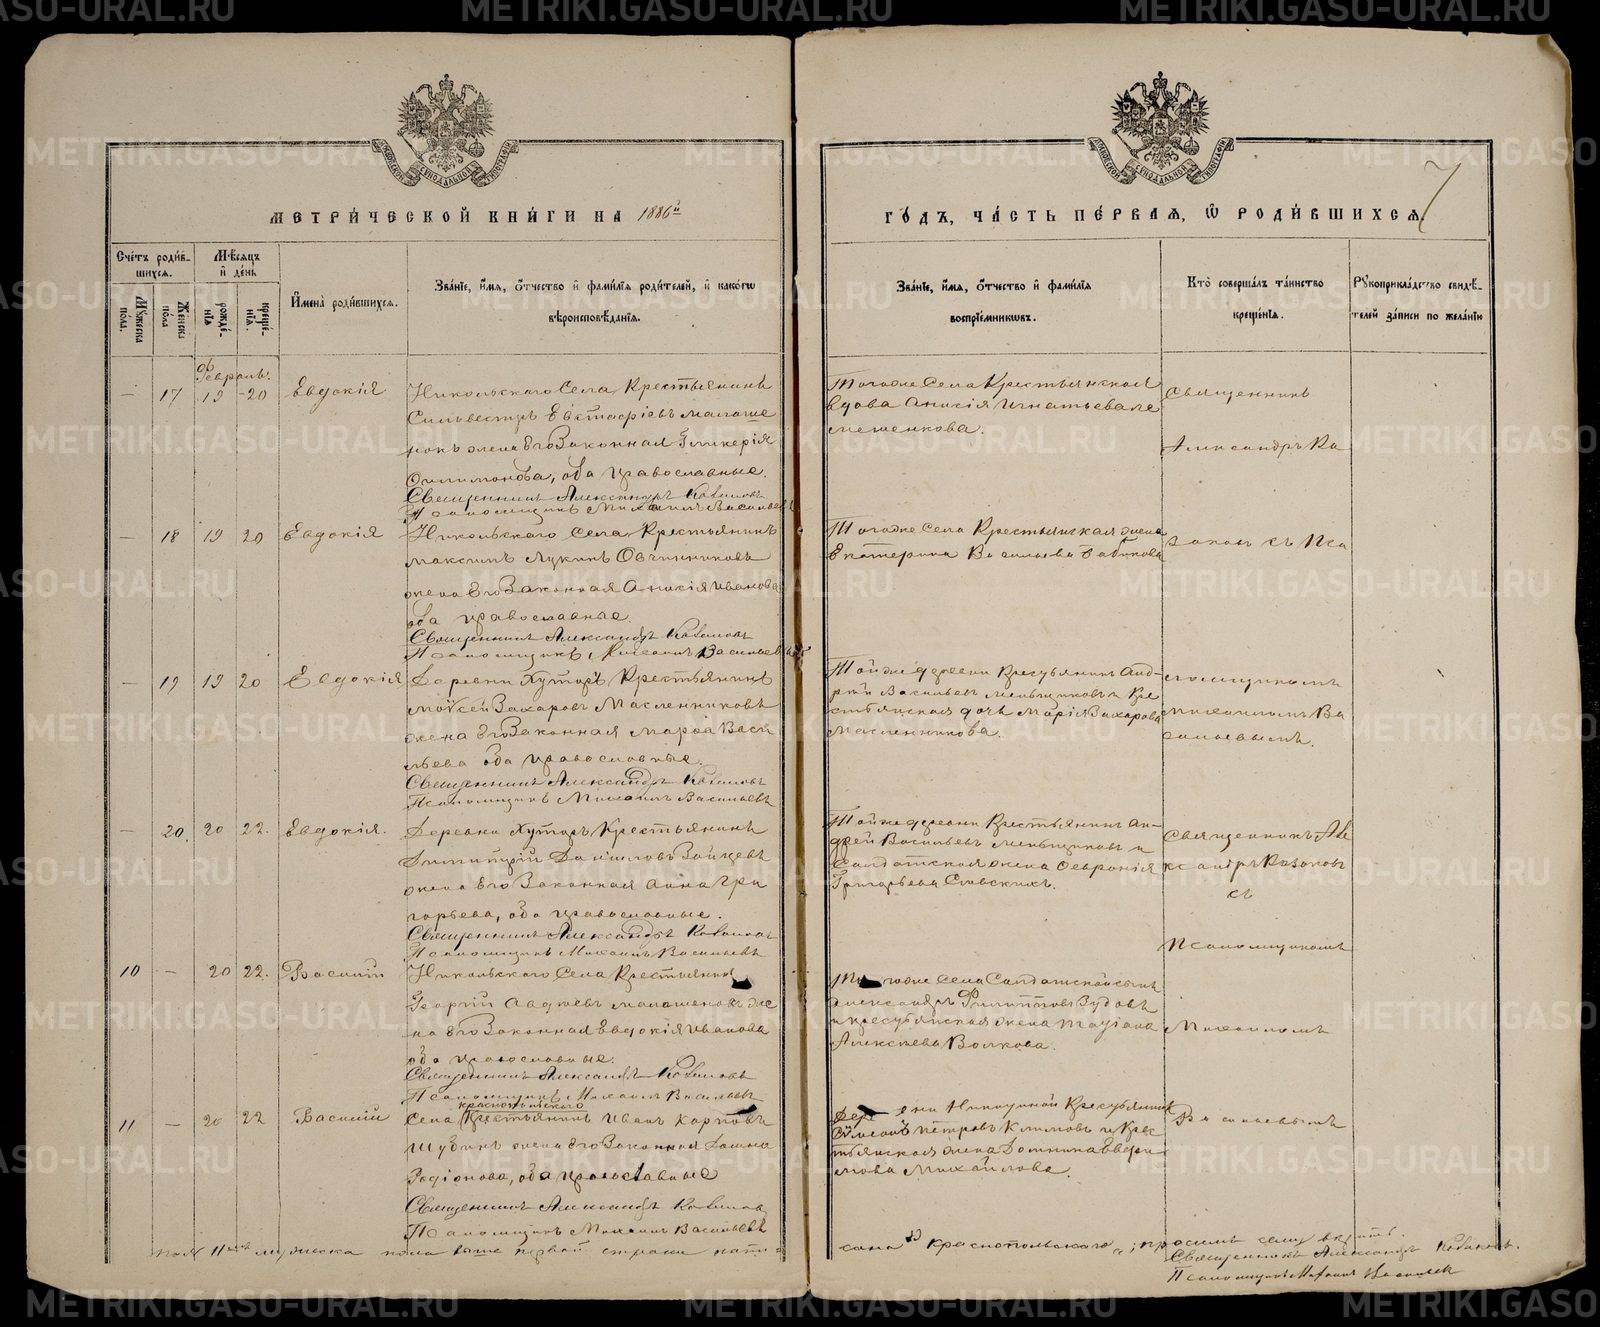 МЕТРИ́ЧЕСКОЙ КНИ́ГИ НА 1886й
ГО́ДЪ, ЧА́СТЬ ПЕ́РВАЯ, Ѿ РОДИ́ВШИХСЯ.
7
Сче́тъ роди́в-
шихся.
Мꙋ́жеска по́ла.
Же́нска по́ла
Мѣ́сяцъ
и҆ де́нь
рожде́-
нїя
креще́-
нїя.
И҆мена̀ роди́вшихся.
Зва́нїе, и҆́мя, ѻ҆́тчество и҆ фами́лїя роди́телей, и҆ како́гѡ
вѣроисповѣ́данїя.
Зва́нїе, и҆́мя, ѻ҆́тчество и҆ фами́лїя
воспрїе́мникѡвъ.
Кто̀ соверша́лъ та́инство
креще́нїя.
Рꙋкоприкла́дство свидѣ́-
телей за́писи по жела́нїю
Февраль.
— 17 19 20 Евдокія
Никольскаго Села Крестьянинъ
Сильвестръ Евстафіевъ малаше
нокъ жена его Законная Гликерія
Филимонова, оба православные.
Священникъ Александръ Казаковъ
Псаломщикъ Михаилъ Васильевъ
Тогоже Села Крестьянская
вдова Анисія Игнатьева Ле
мешенкова.
Священникъ
Александръ Ка
— 18 19 20 Евдокія
Никольскаго Села Крестьянинъ
Максимъ Лукинъ Овчинниковъ
жена его Законная Анисія Иванова
оба православные.
Священникъ Александръ Казаковъ
Псаломщикъ Михаилъ Васильевъ
Тогоже Села Крестьянская жена
Екатерина Васильева Бабикова
заковъ съ Пса
— 19 19 20 Евдокія
Деревни Хуторъ Крестьянинъ
Моѵсей Захаровъ Масленниковъ
жена его Законная Марѳа Васи
льева оба православные.
Священникъ Александръ Казаковъ
Псаломщикъ Михаилъ Васильевъ
Той же деревни Крестьянинъ Анд-
рей Васильевъ Меньщиковъ и Кре
стьянская дочь Марія Захарова
Масленникова.
ломщикомъ
Михаиломъ Ва
сильевымъ.
— 20. 20 22. Евдокія.
Деревни Хуторъ Крестьянинъ
Димитрій Даниловъ Зайцевъ
жена его Законная Анна Гри
горьева, оба православные.
Священникъ Александръ Казаковъ
Псаломщикъ Михаилъ Васильевъ
Той же деревни Крестьянинъ Ан-
дрей Васильевъ Меньщиковъ и
Солдатская жена Февронія
Григорьева
Священникъ Але
ксандръ Казаковъ
съ
Псаломщикомъ
10 — 20 22. Василій
Никольскаго Села Крестьянинъ
Георгій Авдѣевъ малашенокъ же
на его Законная Евдокія Иванова
оба православные.
Священникъ Александръ Казаковъ
Псаломщикъ Михаилъ Васильевъ
Села Солдатскій сынъ
Александръ Филипповъ Зудовъ
и крестьянская жена Татіана
Алексѣева Волкова.
Михаиломъ
11 — 20 22 Василій
краснопольскаго
Села Крестьянинъ Иванъ Карповъ
Шубинъ жена его Законная Дарья
Родіонова, оба православные
Священникъ Александръ Казаковъ
Псаломщикъ Михаилъ Васильевъ
Крестьянинъ
Симеонъ Петровъ Климовъ и Крес
тьянская жена Домника Евѳи
мова Михайлова.
Васильевымъ
мужеска пола выше первой строки напи-
сано Краснопольскаго; просимъ сему вѣрить.
Священникъ Александръ Казаковъ.
Псаломщикъ Михаилъ Васильевъ